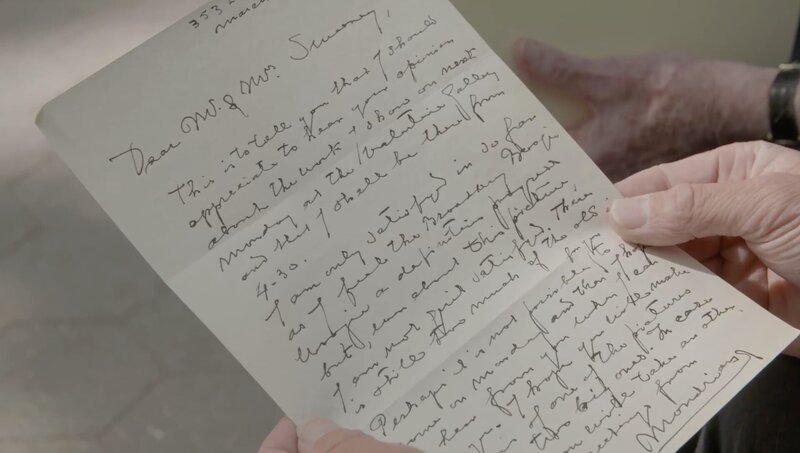 353
March
Dear Mr. & Mrs. Sweeney,
This is to tell you that I should
appreciate to hear your opinion
about the work I show on next
monday at the Valentine Galley
and that I shall be there from
4-30.
I am only satisfied in so far
as I feel the Broadway Boogie
Woogie a definitive progress
but, even about this picture
I am not quit satisfied. There
is still too much of the old.
Perhaps it is not possible for to
come on monday and than I hope
hear from you when I can
you. I hope you will make
of one of the pictures
two big ones. In case
you will take an other.
greetings from
Mondrian